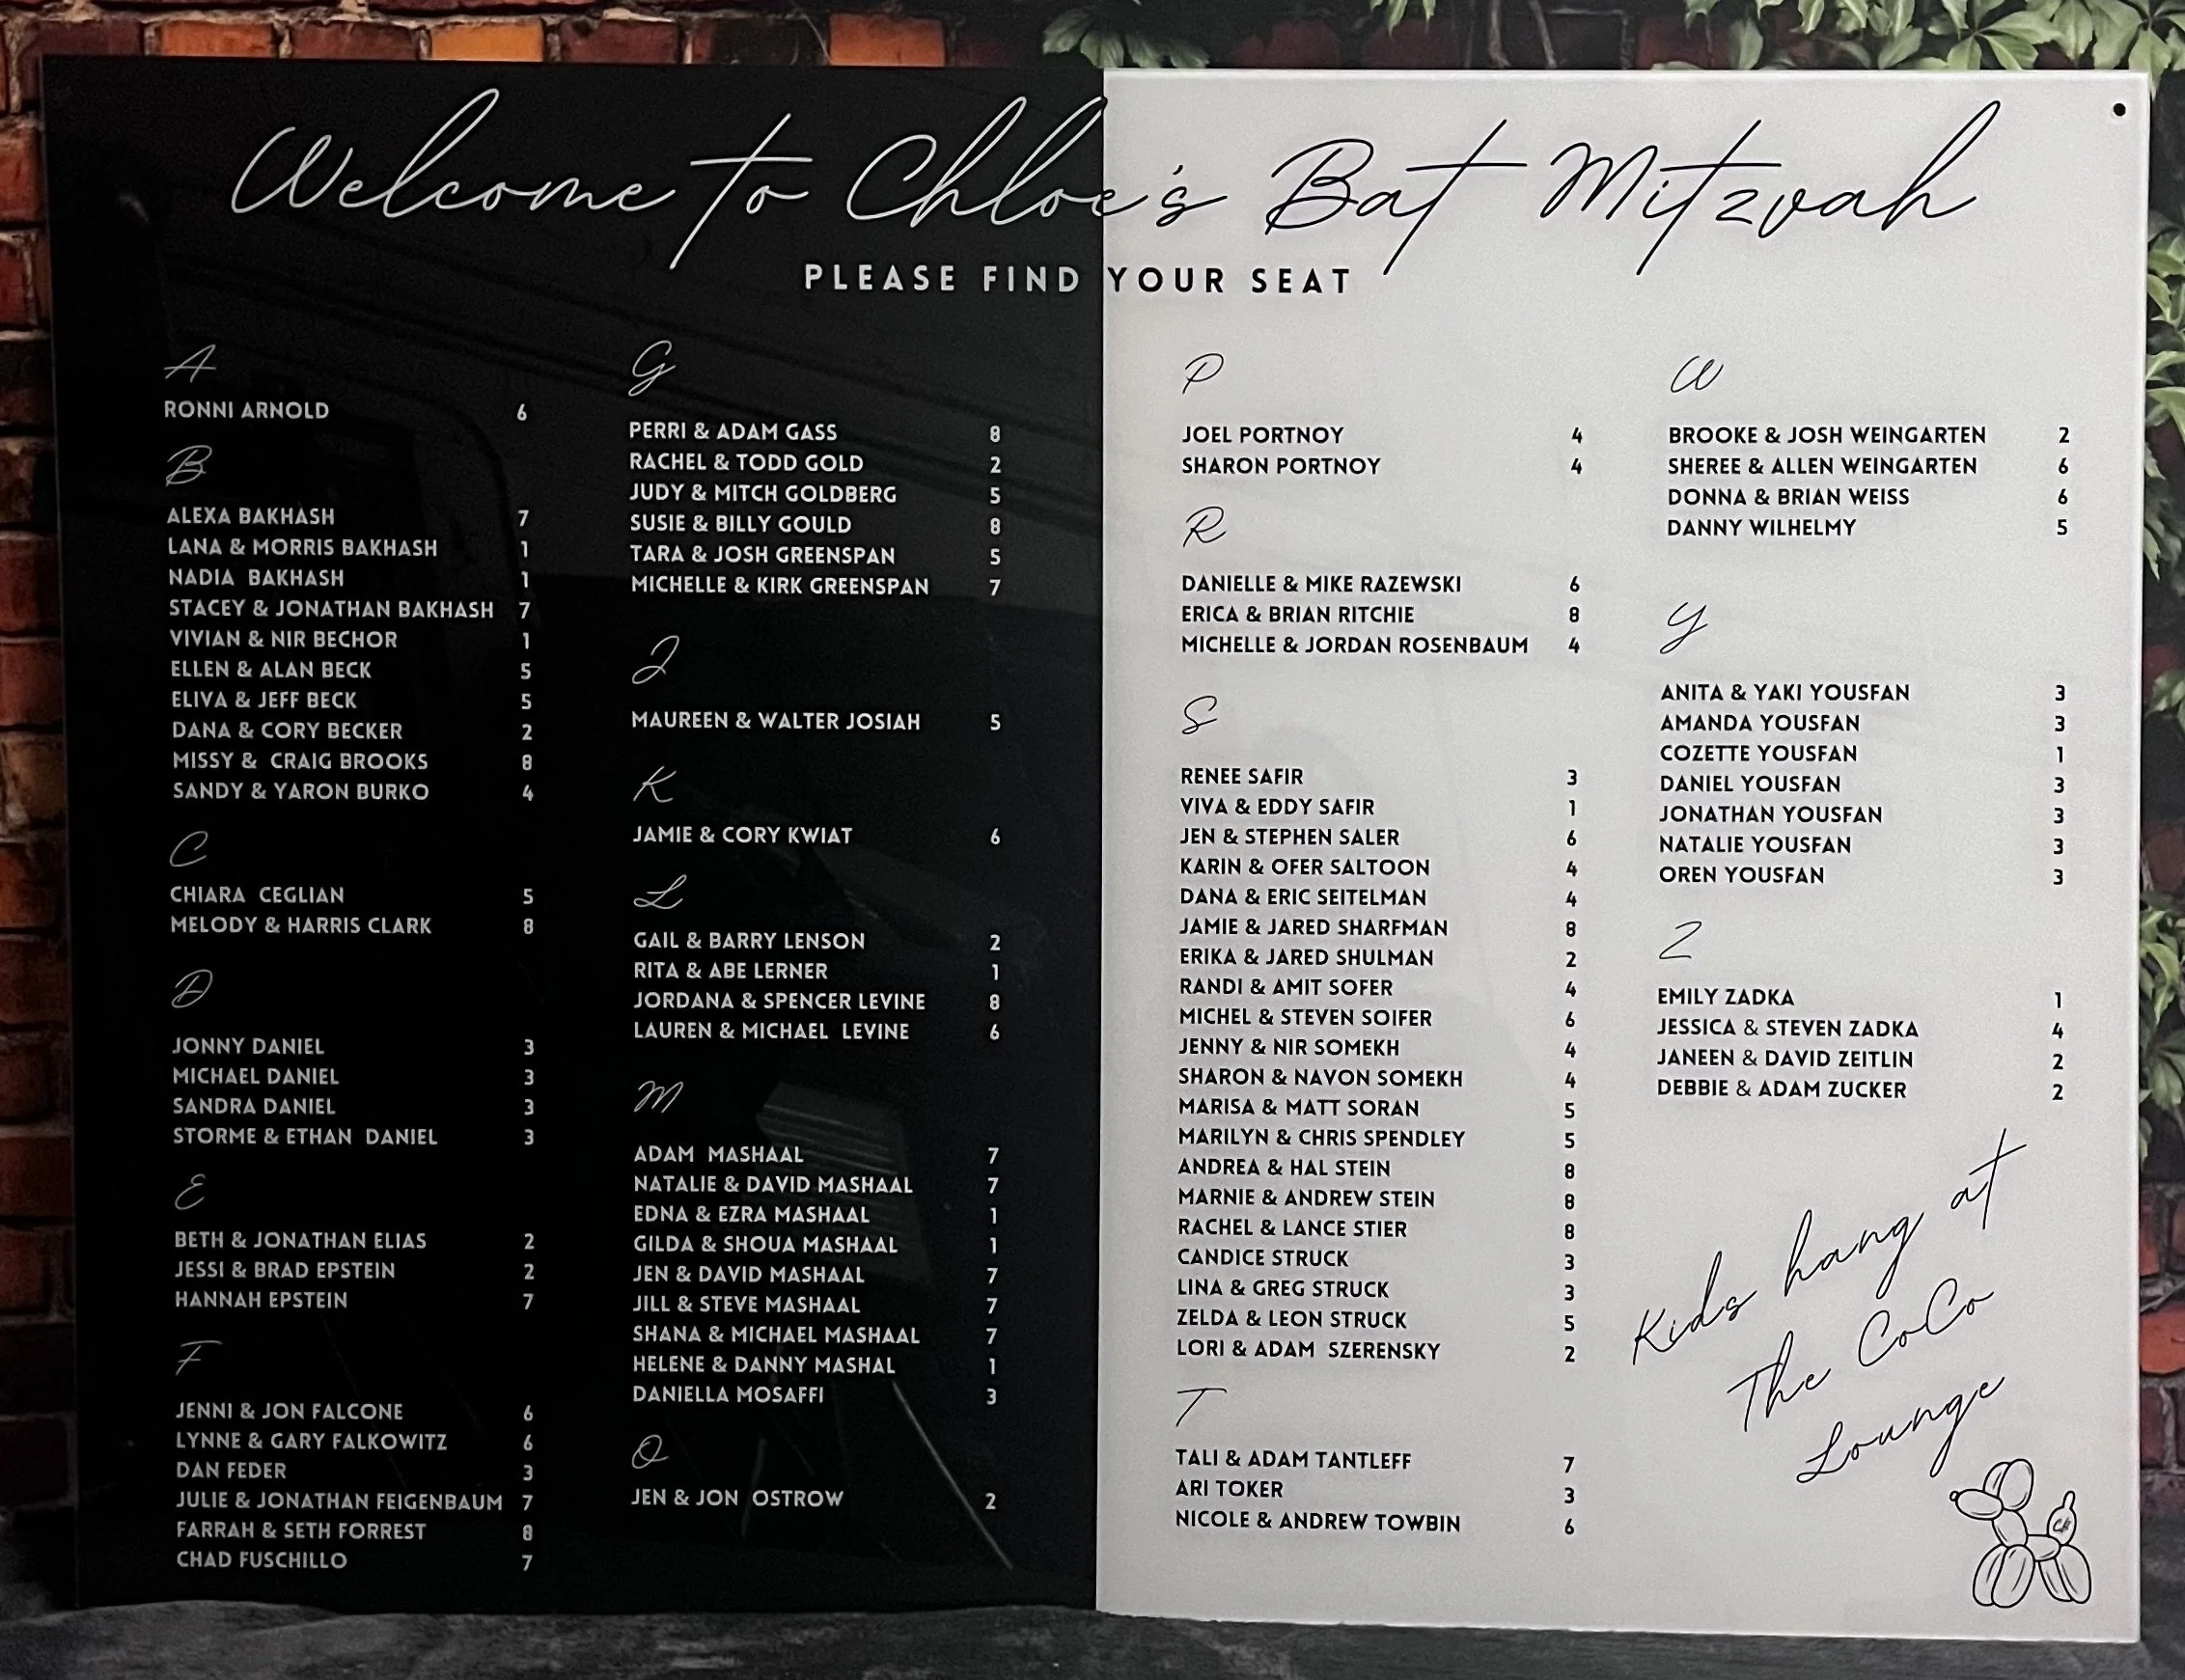 Welcome to Chloe's Bat Mitzvah
PLEASE FIND YOUR SEAT
A
RONNI ARNOLD 6
B
ALEXA BAKHASH 7
LANA & MORRIS BAKHASH 1
NADIA BAKHASH 1
STACEY & JONATHAN BAKHASH 7
VIVIAN & NIR BECHOR 1
ELLEN & ALAN BECK 5
ELIVA & JEFF BECK 5
DANA & CORY BECKER 2
MISSY & CRAIG BROOKS 8
SANDY & YARON BURKO 4
C
CHIARA CEGLIAN 5
MELODY & HARRIS CLARK 8
D
JONNY DANIEL 3
MICHAEL DANIEL 3
SANDRA DANIEL 3
STORME & ETHAN DANIEL 3
E
BETH & JONATHAN ELIAS 2
JESSI & BRAD EPSTEIN 2
HANNAH EPSTEIN 7
F
JENNI & JON FALCONE 6
LYNNE & GARY FALKOWITZ 6
DAN FEDER 3
JULIE & JONATHAN FEIGENBAUM 7
FARRAH & SETH FORREST 8
CHAD FUSCHILLO 7
G
PERRI & ADAM GASS 8
RACHEL & TODD GOLD 2
JUDY & MITCH GOLDBERG 5
SUSIE & BILLY GOULD 8
TARA & JOSH GREENSPAN 5
MICHELLE & KIRK GREENSPAN 7
J
MAUREEN & WALTER JOSIAH 5
K
JAMIE & CORY KWIAT 6
L
GAIL & BARRY LENSON 2
RITA & ABE LERNER 1
JORDANA & SPENCER LEVINE 8
LAUREN & MICHAEL LEVINE 6
M
ADAM MASHAAL 7
NATALIE & DAVID MASHAAL 7
EDNA & EZRA MASHAAL 1
GILDA & SHOUA MASHAAL 1
JEN & DAVID MASHAAL 7
JILL & STEVE MASHAAL 7
SHANA & MICHAEL MASHAAL 7
HELENE & DANNY MASHAL 1
DANIELLA MOSAFFI 3
O
JEN & JON OSTROW 2
P
JOEL PORTNOY 4
SHARON PORTNOY 4
R
DANIELLE & MIKE RAZEWSKI 6
ERICA & BRIAN RITCHIE 8
MICHELLE & JORDAN ROSENBAUM 4
S
RENEE SAFIR 3
VIVA & EDDY SAFIR 1
JEN & STEPHEN SALER 6
KARIN & OFER SALTOON 4
DANA & ERIC SEITELMAN 4
JAMIE & JARED SHARFMAN 8
ERIKA & JARED SHULMAN 2
RANDI & AMIT SOFER 4
MICHEL & STEVEN SOIFER 6
JENNY & NIR SOMEKH 4
SHARON & NAVON SOMEKH 4
MARISA & MATT SORAN 5
MARILYN & CHRIS SPENDLEY 5
ANDREA & HAL STEIN 8
MARNIE & ANDREW STEIN 8
RACHEL & LANCE STIER 8
CANDICE STRUCK 3
LINA & GREG STRUCK 3
ZELDA & LEON STRUCK 5
LORI & ADAM SZERENSKY 2
T
TALI & ADAM TANTLEFF 7
ARI TOKER 3
NICOLE & ANDREW TOWBIN 6
W
BROOKE & JOSH WEINGARTEN 2
SHEREE & ALLEN WEINGARTEN 6
DONNA & BRIAN WEISS 6
DANNY WILHELMY 5
Y
ANITA & YAKI YOUSFAN 3
AMANDA YOUSFAN 3
COZETTE YOUSFAN 1
DANIEL YOUSFAN 3
JONATHAN YOUSFAN 3
NATALIE YOUSFAN 3
OREN YOUSFAN 3
Z
EMILY ZADKA 1
JESSICA & STEVEN ZADKA 4
JANEEN & DAVID ZEITLIN 2
DEBBIE & ADAM ZUCKER 2
Kids hang at
The CoCo
Lounge